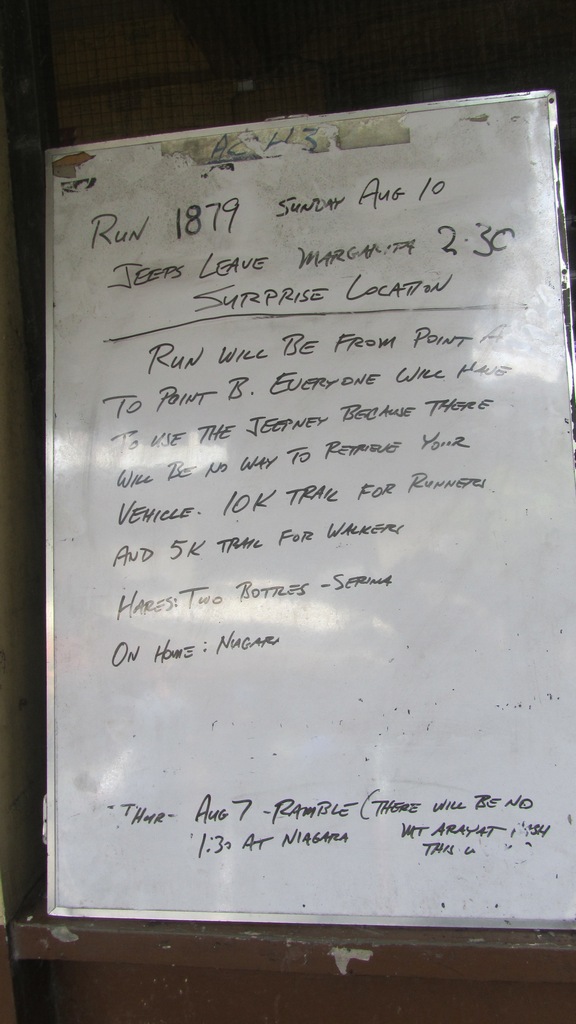 AC H3
RUN 1879 SUNDAY AUG 10
JEEPS LEAVE MARGARITA 2:30
SURPRISE LOCATION
RUN WILL BE FROM POINT A
TO POINT B. EVERYONE WILL HAVE
TO USE THE JEEPNEY BECAUSE THERE
WILL BE NO WAY TO RETRIEVE YOUR
VEHICLE. 10K TRAIL FOR RUNNERS
AND 5K TRAIL FOR WALKERS
HARES: TWO BOTTLES - SERIMA
ON HOME: NIAGARA
THUR- AUG 7 - RAMBLE (THERE WILL BE NO
1:30 AT NIAGARA MT ARAYAT
THIS